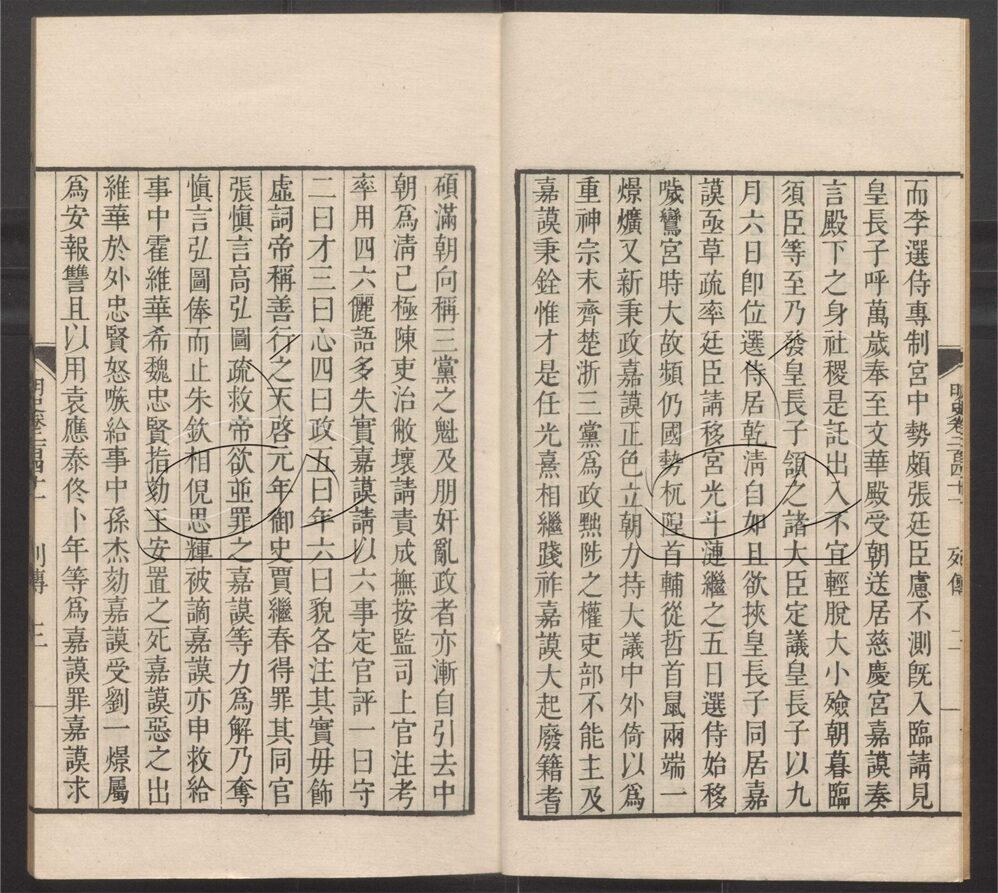 而李選侍專制宮中勢頗張廷臣慮不測旣入臨請見
皇長子呼萬歲奉至文華殿受朝送居慈慶宮嘉謨奏
言殿下之身社稷是託出入不宜輕脫大小殮朝暮臨
須臣等至乃發皇長子頷之諸大臣定議皇長子以九
月六日卽位選侍居乾清自如且欲挾皇長子同居嘉
謨亟草疏率廷臣請移宮光斗漣繼之五日選侍始移
噦鸞宮時大故頻仍國勢杌隉首輔從哲首鼠兩端一
燝爌又新秉政嘉謨正色立朝力持大議中外倚以爲
重神宗末齊楚浙三黨爲政黜陟之權吏部不能主及
嘉謨秉銓惟才是任光熹相繼踐祚嘉謨大起廢籍耆
明史卷二百四十一 列傳 二
碩滿朝向稱三黨之魁及朋奸亂政者亦漸自引去中
朝爲淸已極陳吏治敝壞請責成撫按監司上官注考
率用四六儷語多失實嘉謨請以六事定官評一曰守
二曰才三曰心四曰政五曰年六曰貌各注其實毋飾
虛詞帝稱善行之天啓元年御史賈繼春得罪其同官
張慎言高弘圖疏救帝欲並罪之嘉謨等力爲解乃奪
慎言弘圖俸而止朱欽相倪思輝被謫嘉謨亦申救給
事中霍維華希魏忠賢指劾王安置之死嘉謨惡之出
維華於外忠賢怒嗾給事中孫杰劾嘉謨受劉一燝屬
爲安報讐且以用袁應泰佟卜年等爲嘉謨罪嘉謨求
列傳 三